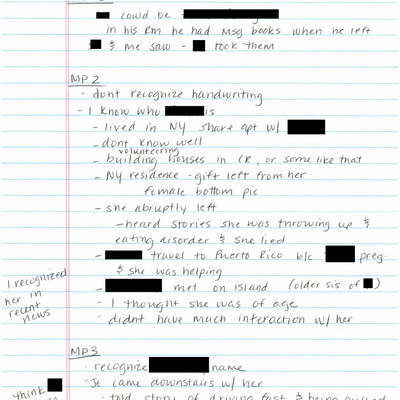 could be
in his Rm he had Msg books when he left
& me saw - took them
MP 2
- dont recognize handwriting
- I know who is
- lived in NY share apt w/
- dont know well
volunteering
- building houses in CR, or some like that
- NY residence - gift left from her
female bottom pic
- she abruptly left
- heard stories she was throwing up &
eating disorder & she lied
- travel to Puerto Rico b/c preg.
& she was helping
- met on island (older sis of )
- I thought she was of age
- didnt have much interaction w/ her
I recognized
her in
recent
news
MP3
- recognize name
- It came downstairs w/ her
think
- told story of driving fast & being